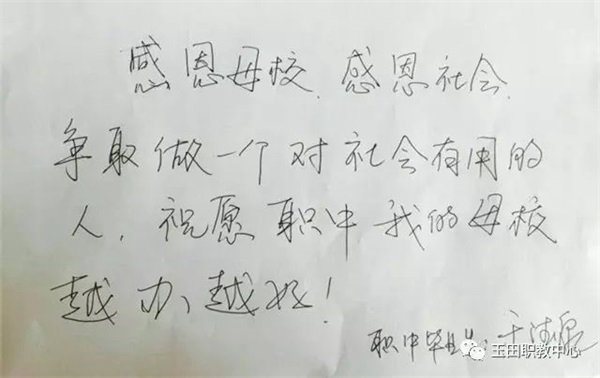 感恩母校、感恩社会、
争取做一个对社会有用的
人，祝愿职中我的母校
越办越好！
职中毕业生：于
玉田职教中心